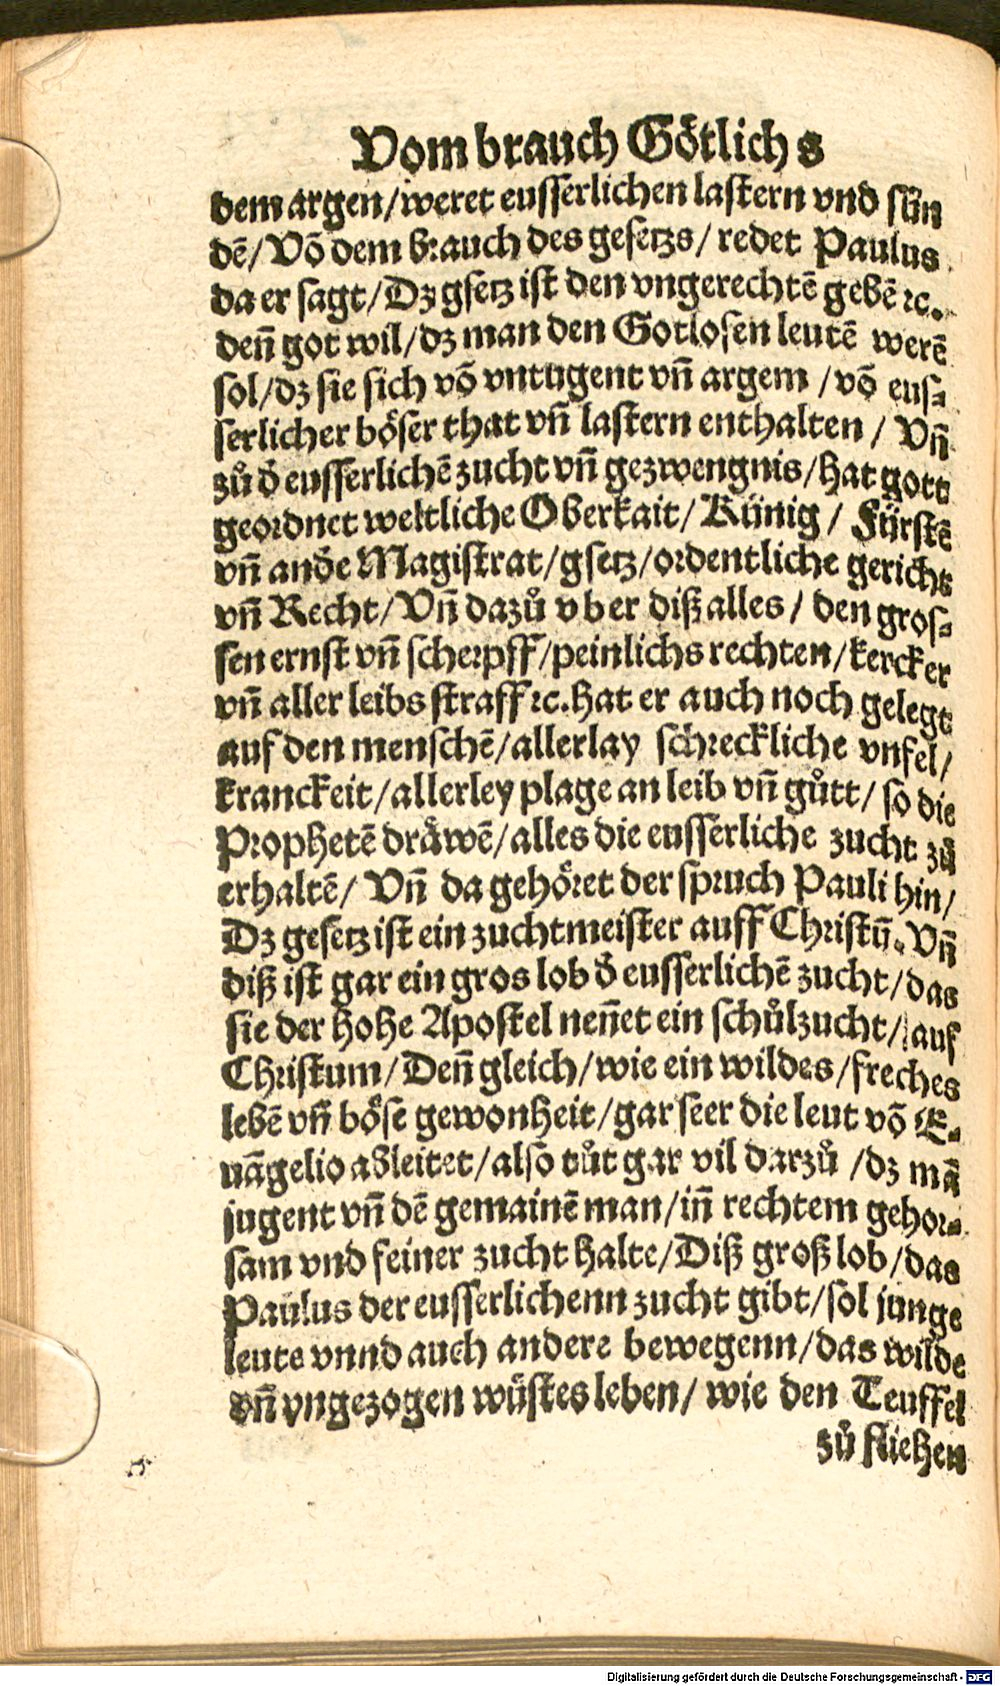 Vom brauch Götlichs
dem argen/weret eusserlichen lastern vnd sün
dẽ/Võ dem brauch des gesetzs/ redet Paulus
da er sagt/Dz gsetz ist den vngerechtẽ gebẽ ꝛc.
deñ got wil/dz man den Gotlosen leutẽ werẽ
sol/dz sie sich võ vntugent vñ argem /võ eus⸗
serlicher böser that vñ lastern enthalten / Vñ
zů d̕ eusserlichẽ zucht vñ gezwengnis/hat gott
geordnet weltliche Oberkait/ Künig / Fürstẽ
vñ and̕e Magistrat/gsetz/ordentliche gericht
vñ Recht/Vñ dazů vber diß alles/ den gros⸗
sen ernst vñ scherpff/peinlichs rechten/kercker
vñ aller leibs straff ꝛc.hat er auch noch gelegt
auf den menschẽ/allerlay schreckliche vnfel/
kranckeit/allerley plage an leib vñ gůtt/ so die
Prophetẽ dräwẽ/alles die eusserliche zucht zů
erhaltẽ/ Vñ da gehöret der spruch Pauli hin/
Dz gesetz ist ein zuchtmeister auff Christũ. Vñ
diß ist gar ein gros lob d̕ eusserlichẽ zucht/das
sie der hohe Apostel neñet ein schůlzucht/auf
Christum/Deñ gleich/wie ein wildes/freches
lebẽ vñ böse gewonheit/gar seer die leut võ E⸗
uãgelio ableitet/also tůt gar vil darzů /dz mã
jugent vñ dẽ gemainẽ man/iñ rechtem gehor⸗
sam vnd feiner zucht halte/Diß groß lob/das
Paulus der eusserlichenn zucht gibt/sol junge
leute vnnd auch andere bewegenn/das wilde
vñ vngezogen wüstes leben/ wie den Teuffel
zů fliehen
Digitalisierung gefördert durch die Deutsche Forschungsgemeinschaft - DFG